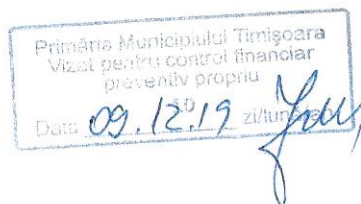 Primăria Municipiului Timișoara
Vizat pentru control financiar
preventiv propriu
Data 09.12.19 zi/lună/an